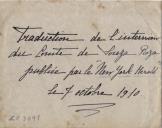 Traduction de l'interview
du Comte de Souza Roza
publiée par le New York Herald
le 7 octobre 1910